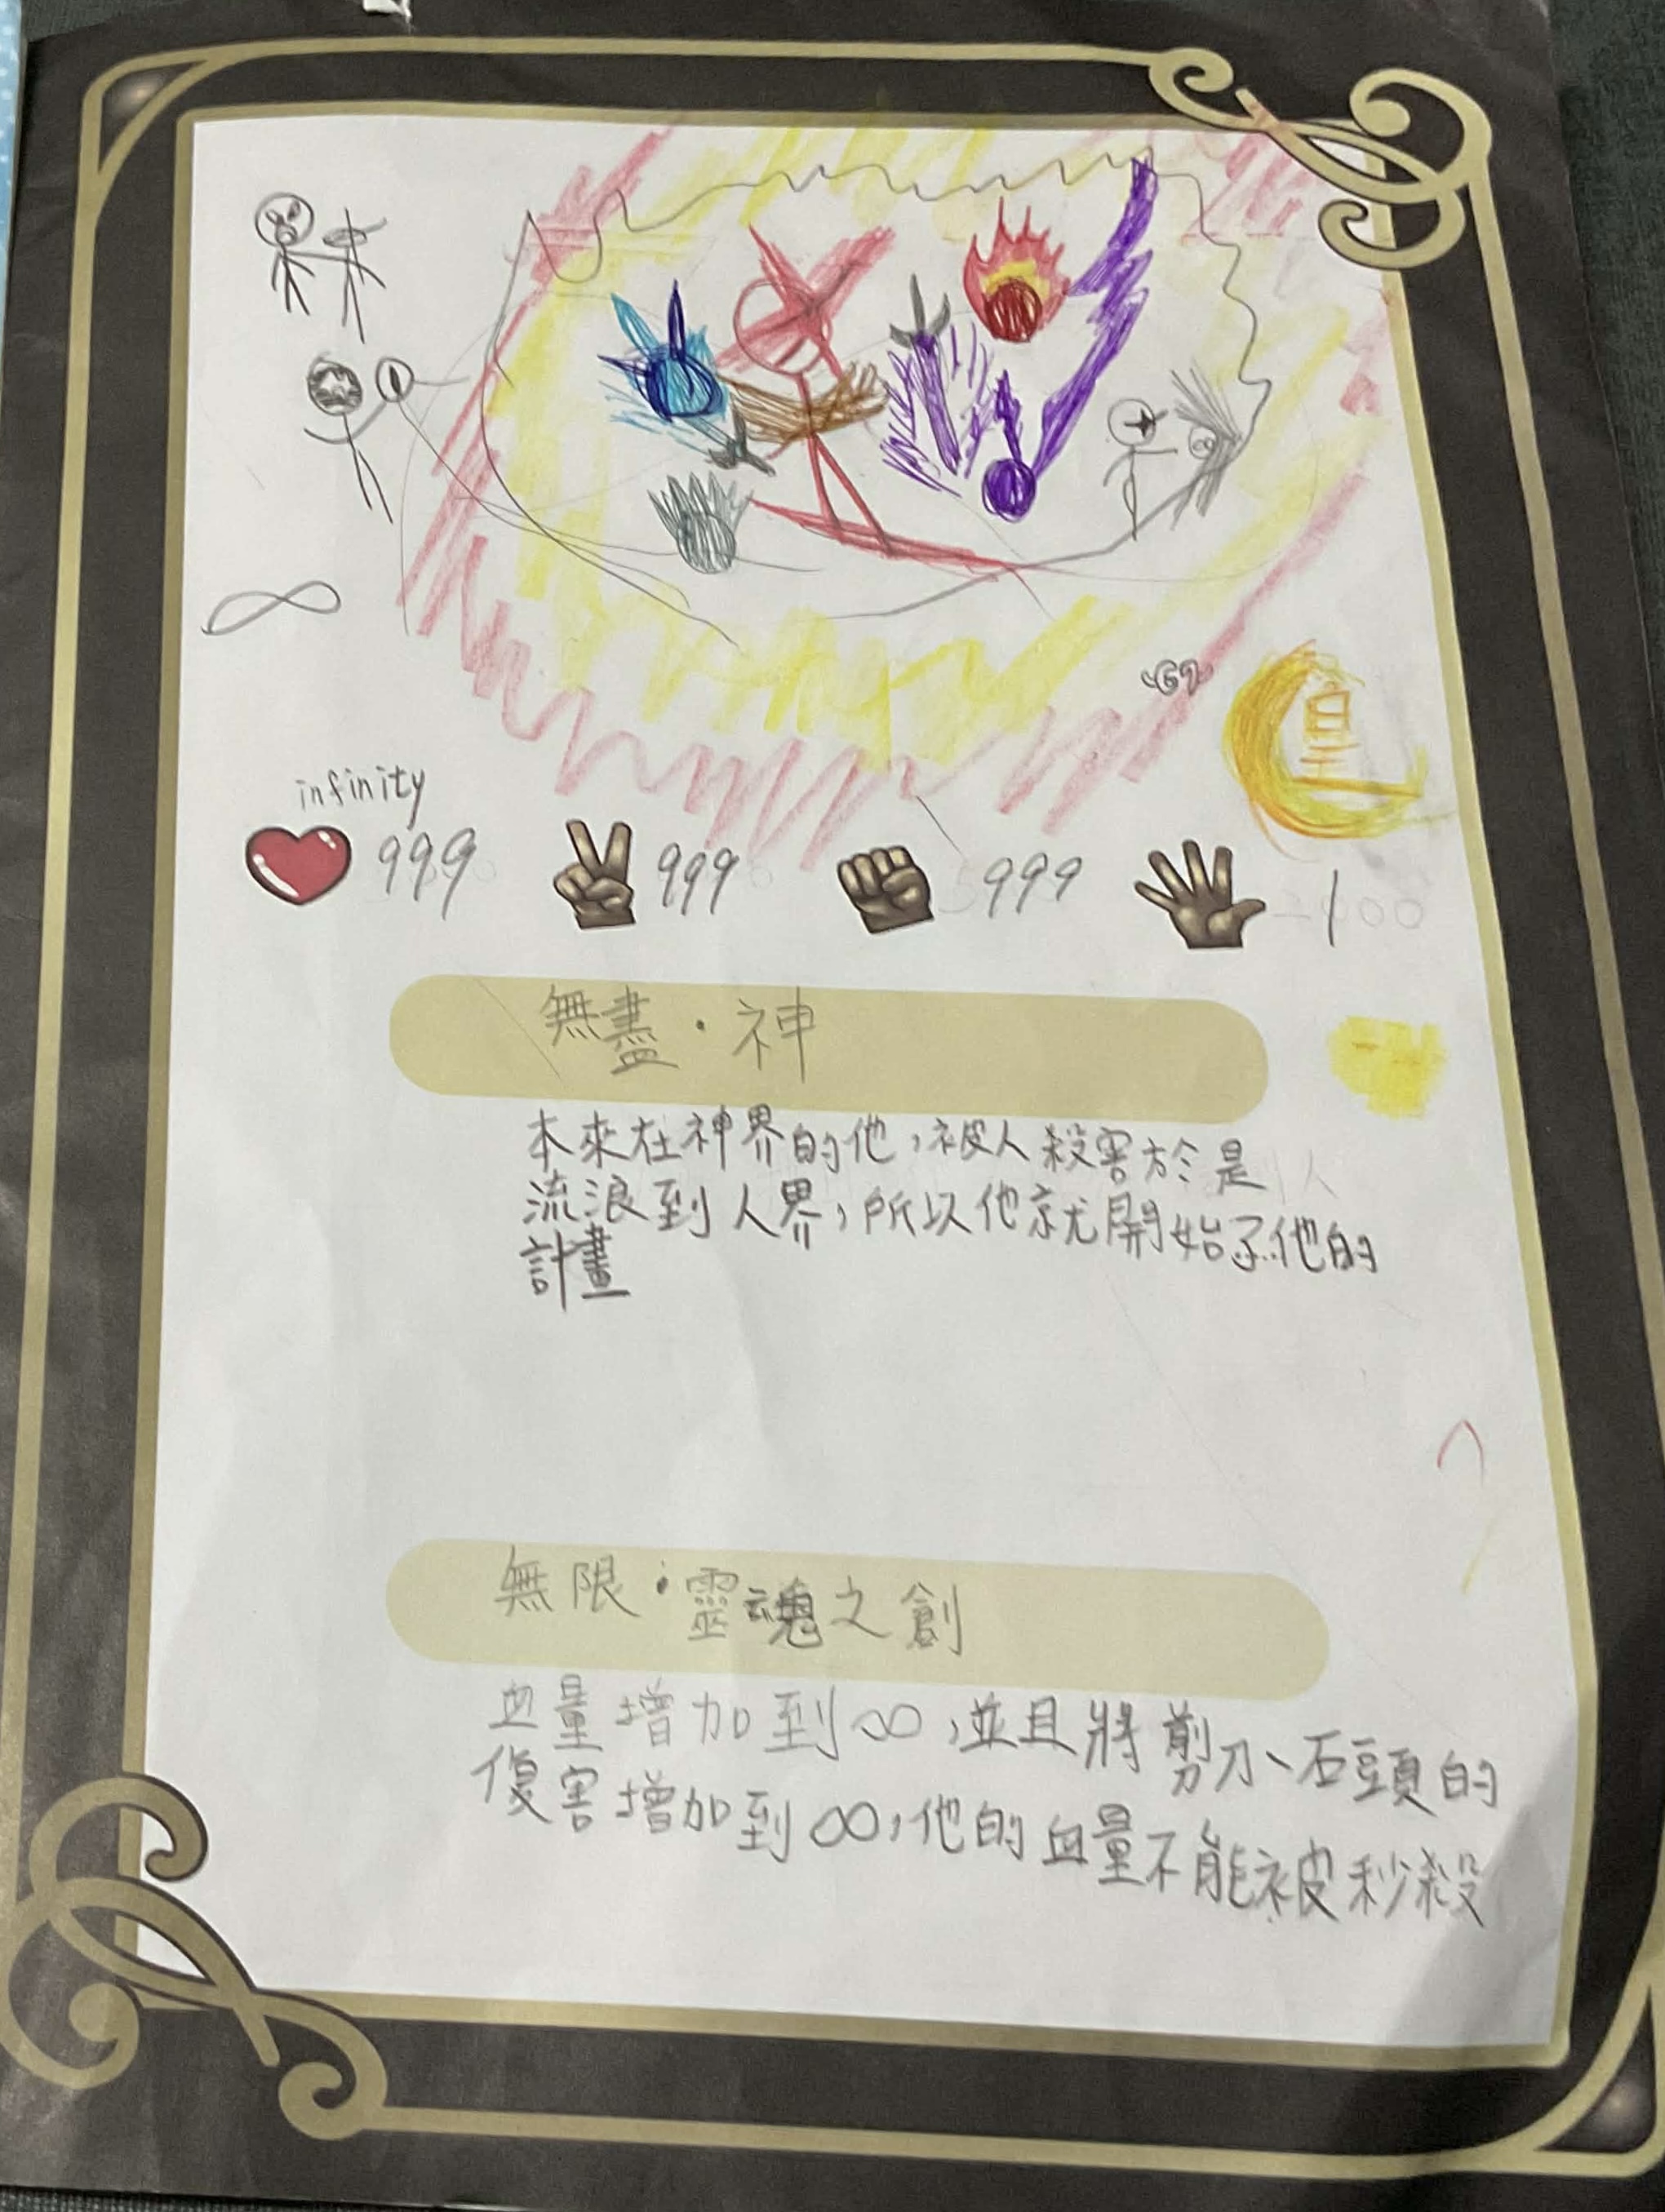 ∞
皇
infinity
999
999
999
1
無盡·神
本來在神界的他,被人殺害於是
流浪到人界,所以他就開始了他的
計畫
無限·靈魂之創
血量增加到∞,並且將剪刀、石頭的
傷害增加到∞,他的血量不能被秒殺